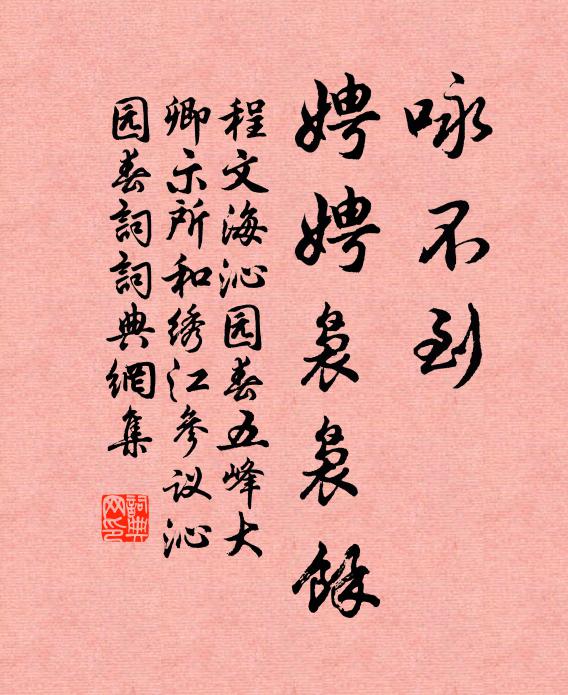 咏不到
娉娉袅袅馀
程文海沁园春五峰大
卿示所和绣江參议沁
园春詞詞典網集
詞典网印